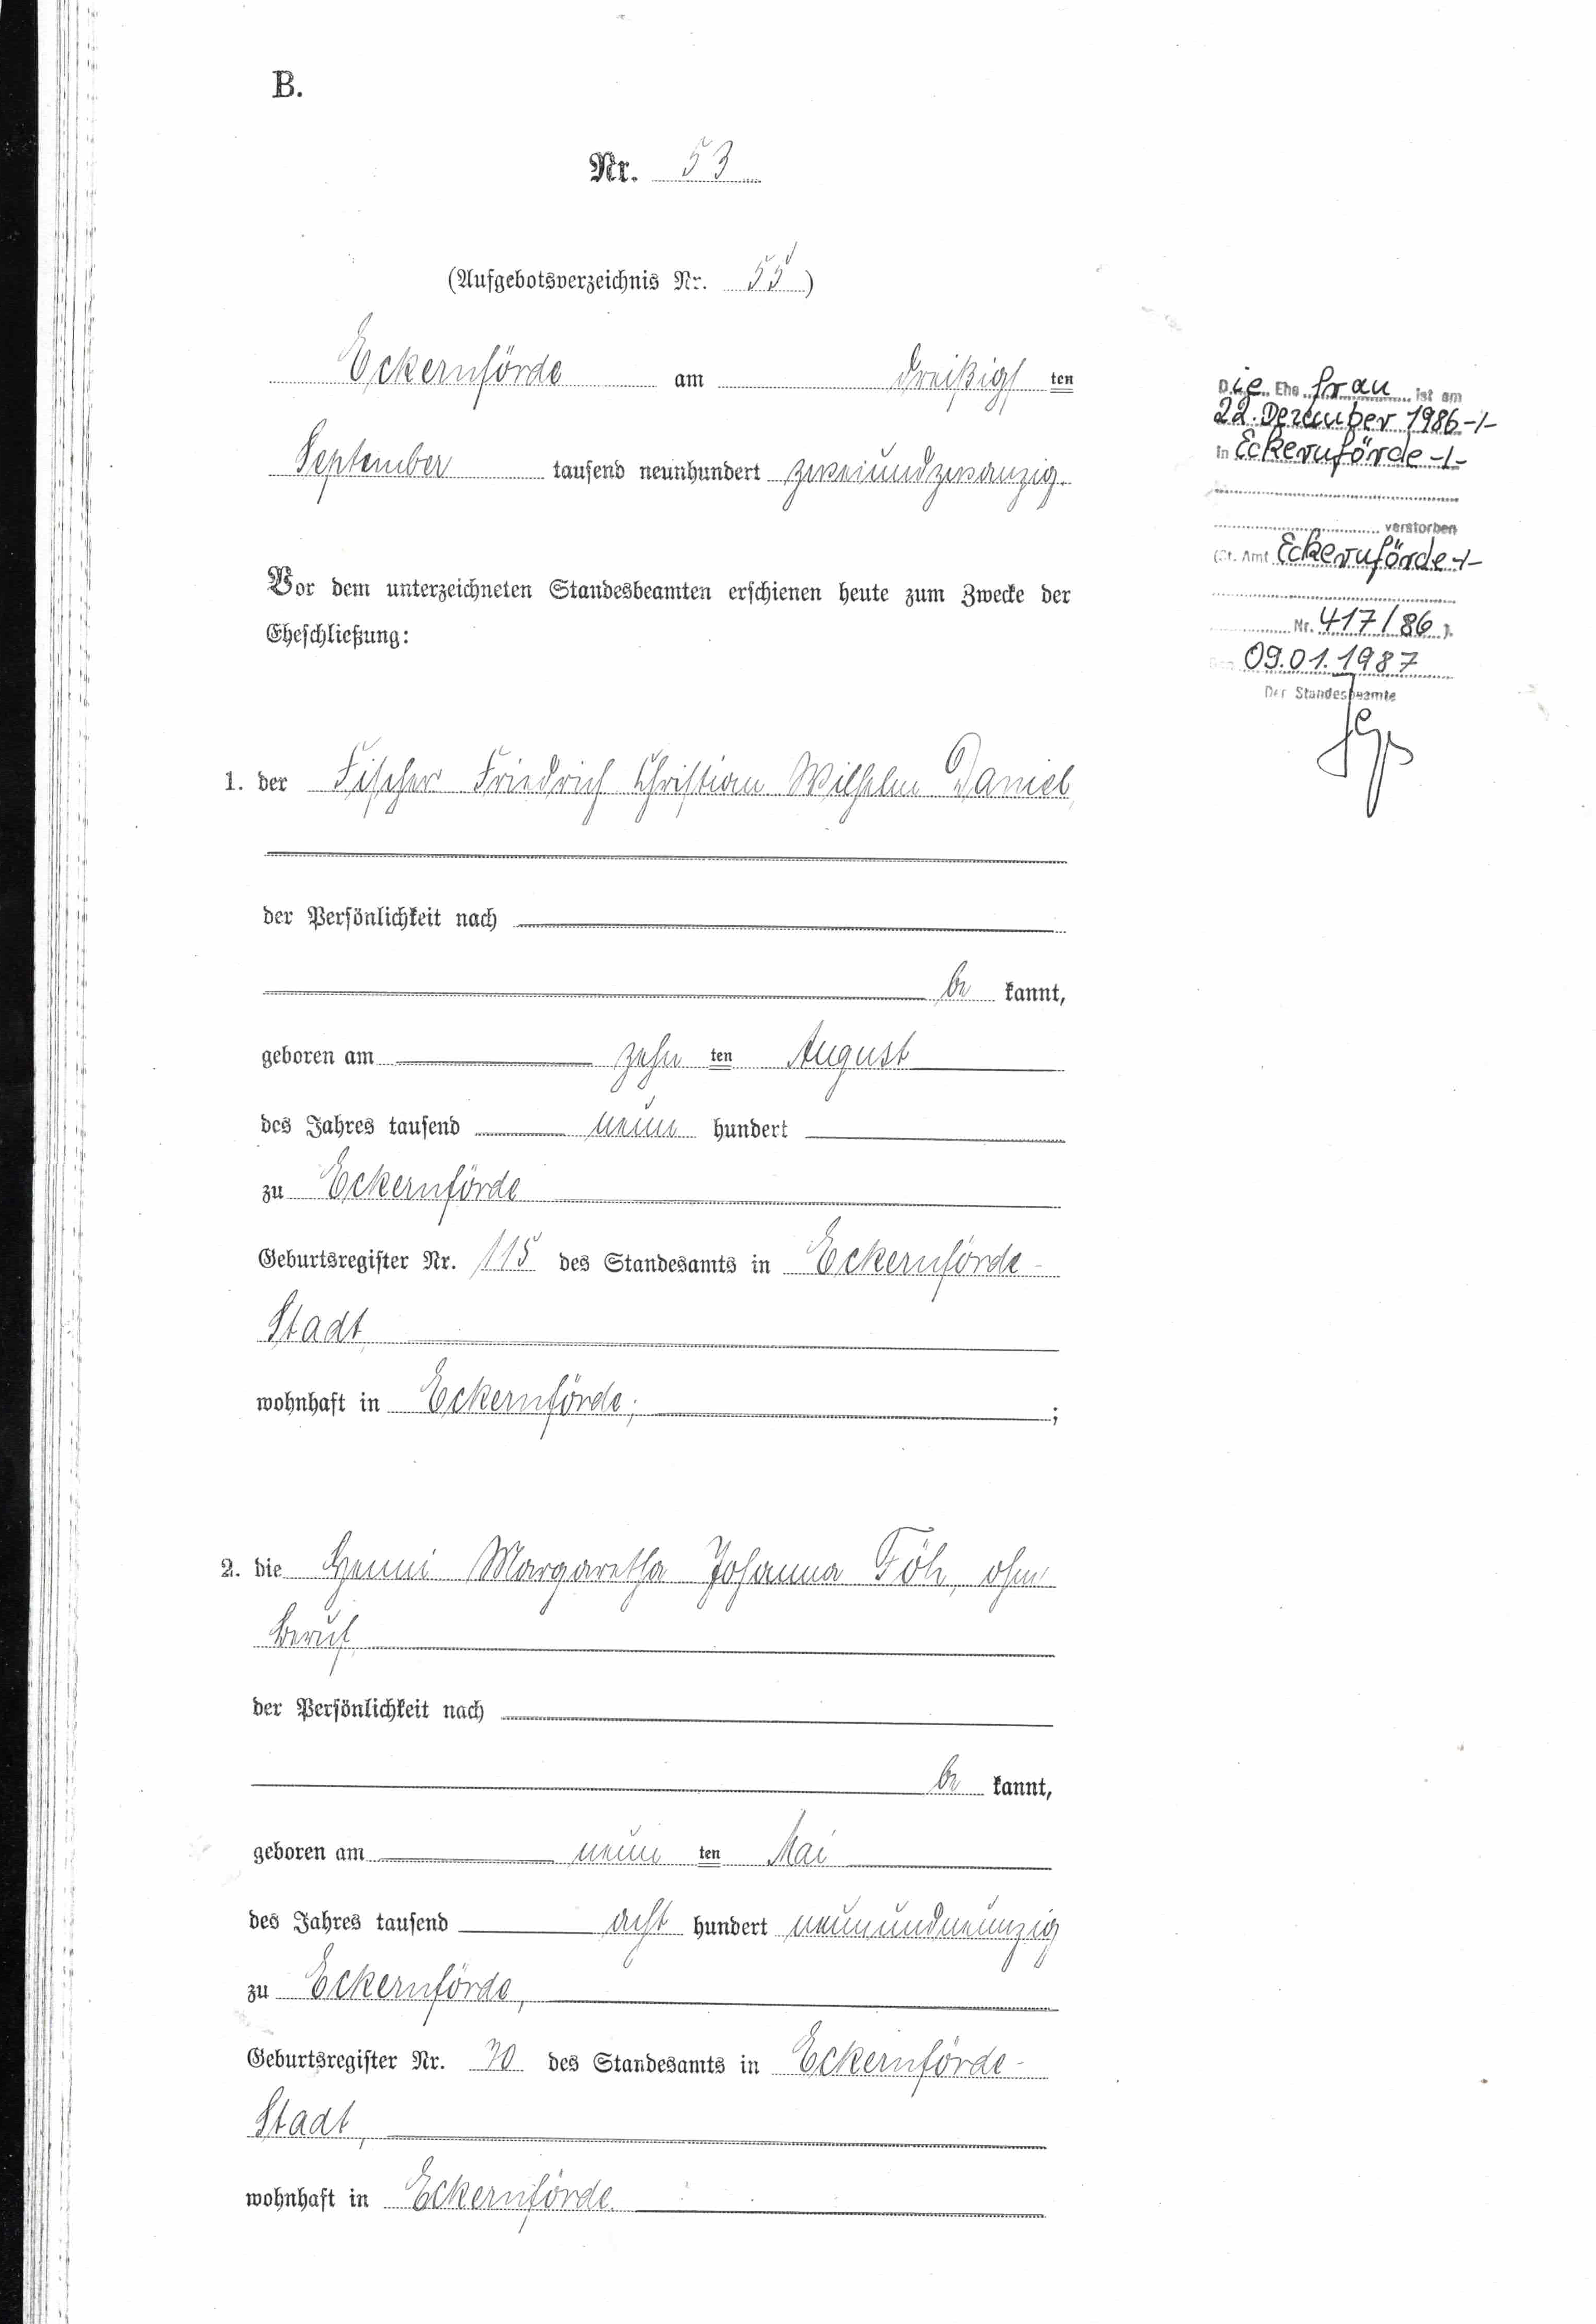 B.
Nr. 53
(Aufgebotsverzeichnis Nr. 55)
Eckernförde am dreißigsten
September tausend neunhundert zweiundzwanzig.
Vor dem unterzeichneten Standesbeamten erschienen heute zum Zwecke der
Eheschließung:
1. der Fischer Friedrich Christian Wilhelm Daniel,
der Persönlichkeit nach
be kannt,
geboren am zehn ten August
des Jahres tausend neun hundert
zu Eckernförde
Geburtsregister Nr. 115 des Standesamts in Eckernförde-
Stadt
wohnhaft in Eckernförde, ;
2. die Henni Margaretha Johanna Föh, ohne
Beruf
der Persönlichkeit nach
be kannt,
geboren am neun ten Mai
des Jahres tausend acht hundert neunundneunzig
zu Eckernförde,
Geburtsregister Nr. 70 des Standesamts in Eckernförde-
Stadt,
wohnhaft in Eckernförde
Die Ehefrau ist am
22. Dezember 1986 -/-
in Eckernförde -/-
verstorben
(St. Amt Eckernförde -/-
Nr. 417/86 ).
Den 09.01.1987
Der Standesbeamte